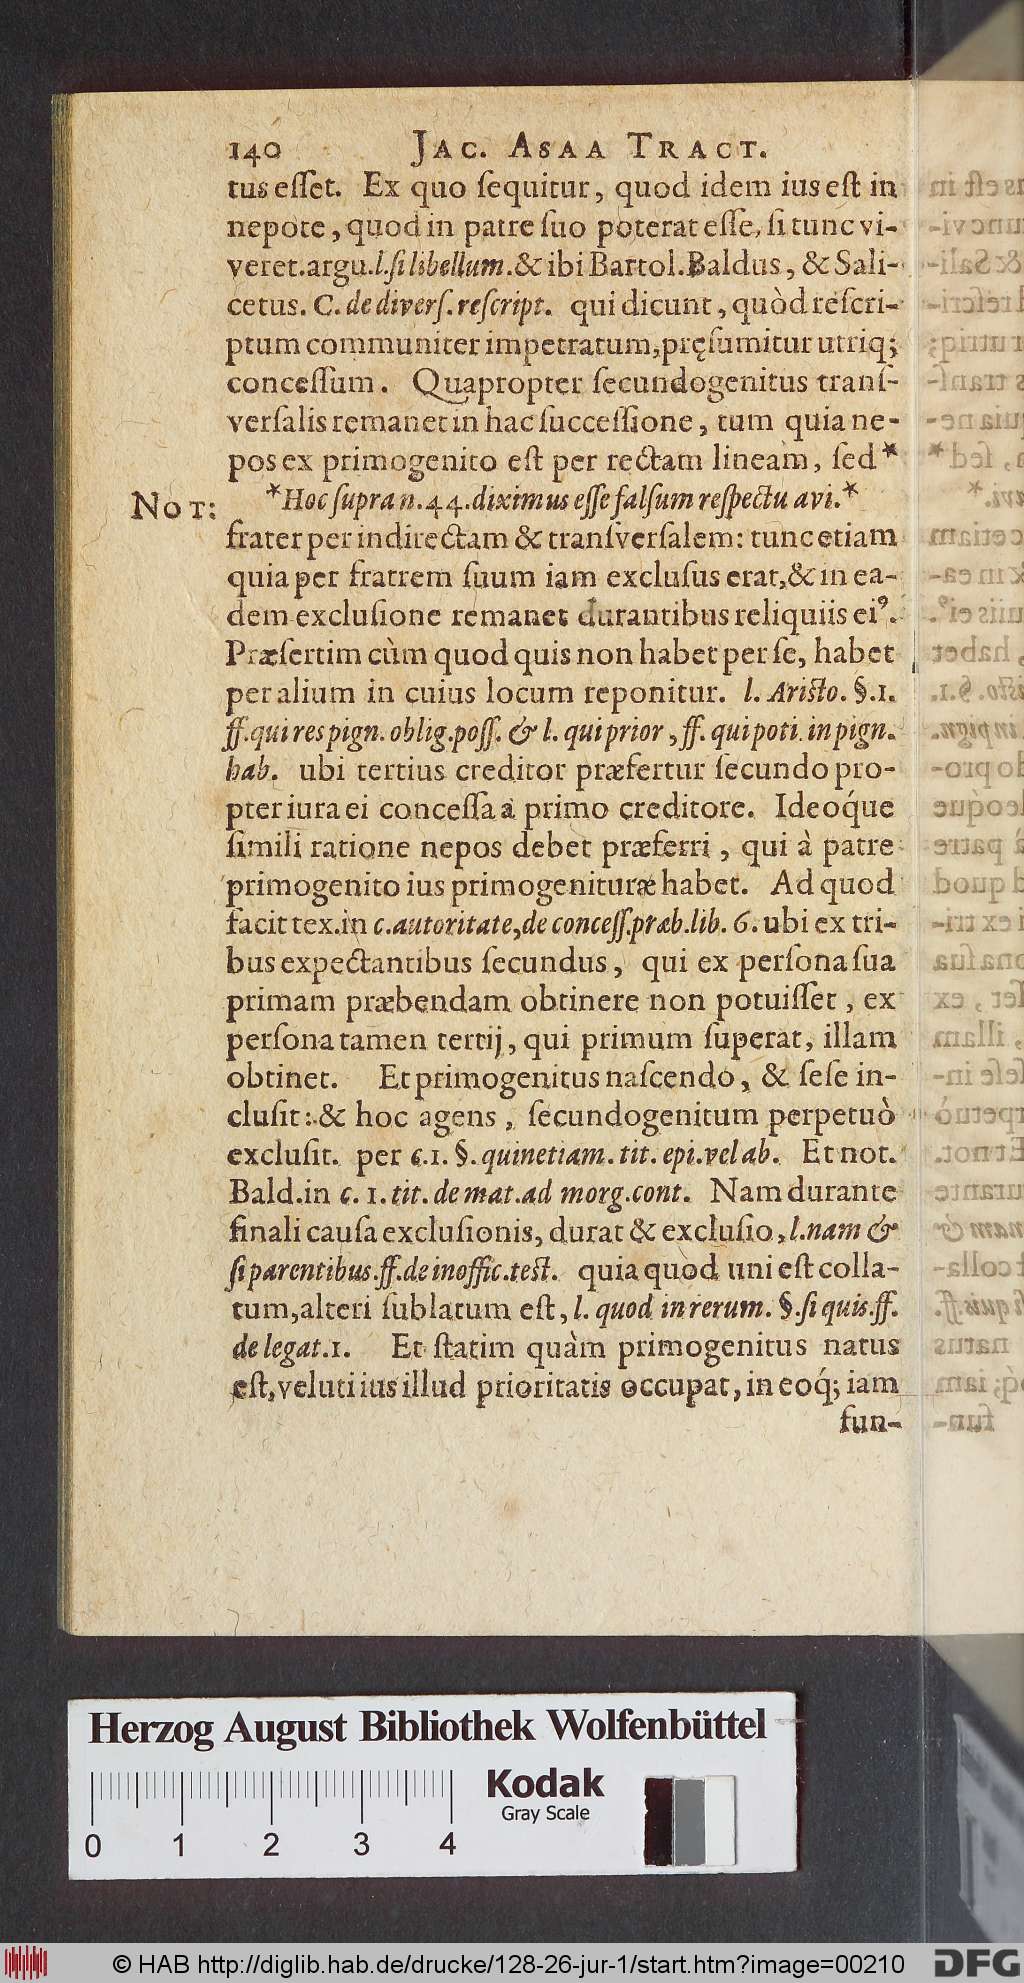 140 JAC. ASAA TRACT.
tus esſet. Ex quo ſequitur, quod idem ius eſt in
nepote, quod in patre ſuo poterat eſſe, ſi tunc vi-
veret. argu. l. ſi libellum. & ibi Bartol. Baldus, & Sali-
cetus. C. de diverſ. reſcript. qui dicunt, quòd reſcri-
ptum communiter impetratum, pręſumitur utriq;
conceſſum. Quapropter ſecundogenitus tranſ-
verſalis remanet in hac ſucceſſione, tum quia ne-
pos ex primogenito eſt per rectam lineam, ſed *
NOT: * Hoc ſupra n. 44. diximus eſſe falſum reſpectu avi. *
frater per indirectam & tranſverſalem: tunc etiam
quia per fratrem ſuum iam excluſus erat, & in ea-
dem excluſione remanet durantibus reliquiis eiꝰ.
Præſertim cùm quod quis non habet per ſe, habet
per alium in cuius locum reponitur. l. Ariſto. §. 1.
ff. qui res pign. oblig. poſſ. & l. qui prior, ff. qui poti. in pign.
hab. ubi tertius creditor præfertur ſecundo pro-
pter iura ei conceſſa à primo creditore. Ideoq́ue
ſimili ratione nepos debet præferri, qui à patre
primogenito ius primogenituræ habet. Ad quod
facit tex. in c. autoritate, de conceſſ. præb. lib. 6. ubi ex tri-
bus expectantibus ſecundus, qui ex perſona ſua
primam præbendam obtinere non potuiſſet, ex
perſona tamen tertij, qui primum ſuperat, illam
obtinet. Et primogenitus naſcendo, & ſeſe in-
cluſit: & hoc agens, ſecundogenitum perpetuò
excluſit. per c. 1. §. quinetiam. tit. epi. vel ab. Et not.
Bald. in c. 1. tit. de mat. ad morg. cont. Nam durante
finali cauſa excluſionis, durat & excluſio, l. nam &
ſi parentibus. ff. de inoffic. teſt. quia quod uni eſt colla-
tum, alteri ſublatum eſt, l. quod in rerum. §. ſi quis. ff.
de legat. 1. Et ſtatim quàm primogenitus natus
eſt, veluti ius illud prioritatis occupat, in eoq́; iam
fun-
Herzog August Bibliothek Wolfenbüttel
Kodak
Gray Scale
0 1 2 3 4
© HAB http://diglib.hab.de/drucke/128-26-jur-1/start.htm?image=00210
DFG